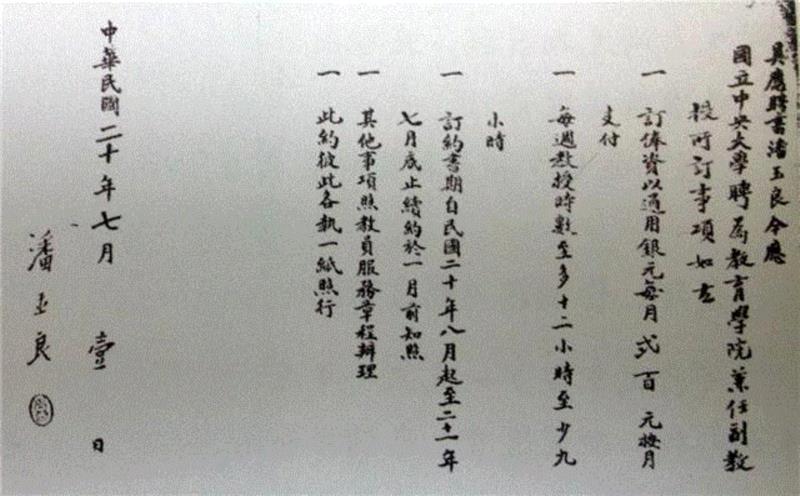 具應聘書潘玉良今應
國立中央大學聘爲教育學院兼任副教
授所訂事項如左
一 訂俸資以通用銀元每月弍百元按月
支付
一 每週教授時數至多十二小時至少九
小時
一 訂約書期自民國二十年八月起至二十一年
七月底止續約於一月前知照
一 其他事項照教員服務章程辦理
一 此約彼此各執一紙照行
中華民國二十年七月 壹 日
潘玉良